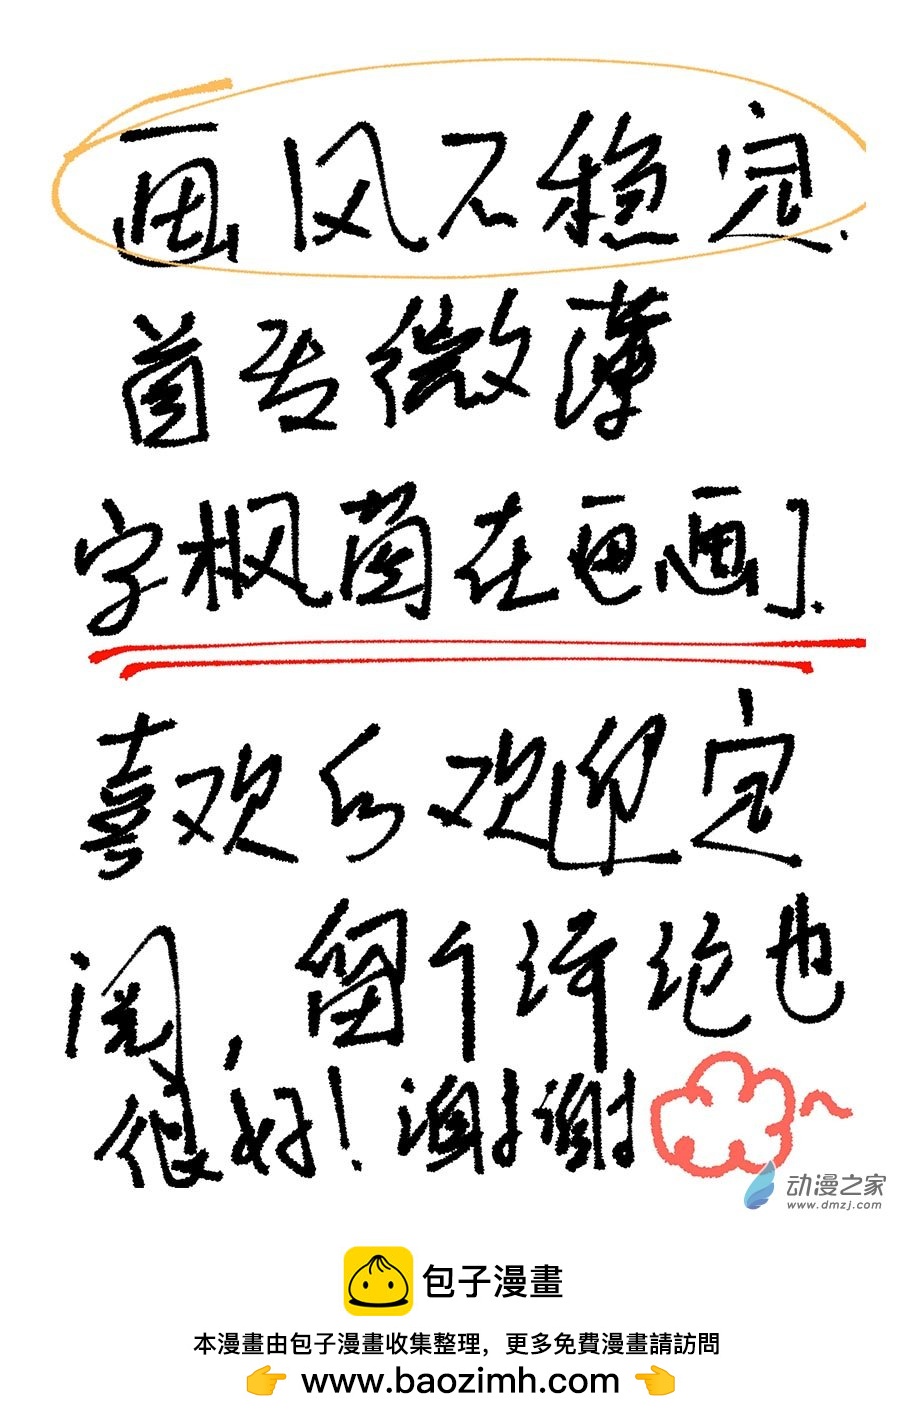 画风不稳定.
首告微薄
字枫菌在画画].
喜欢的欢迎定
阅,留个评论也
很好!谢谢
动漫之家
www.dmzj.com
包子漫畫
本漫畫由包子漫畫收集整理，更多免費漫畫請訪問
👉 www.baozimh.com 👈